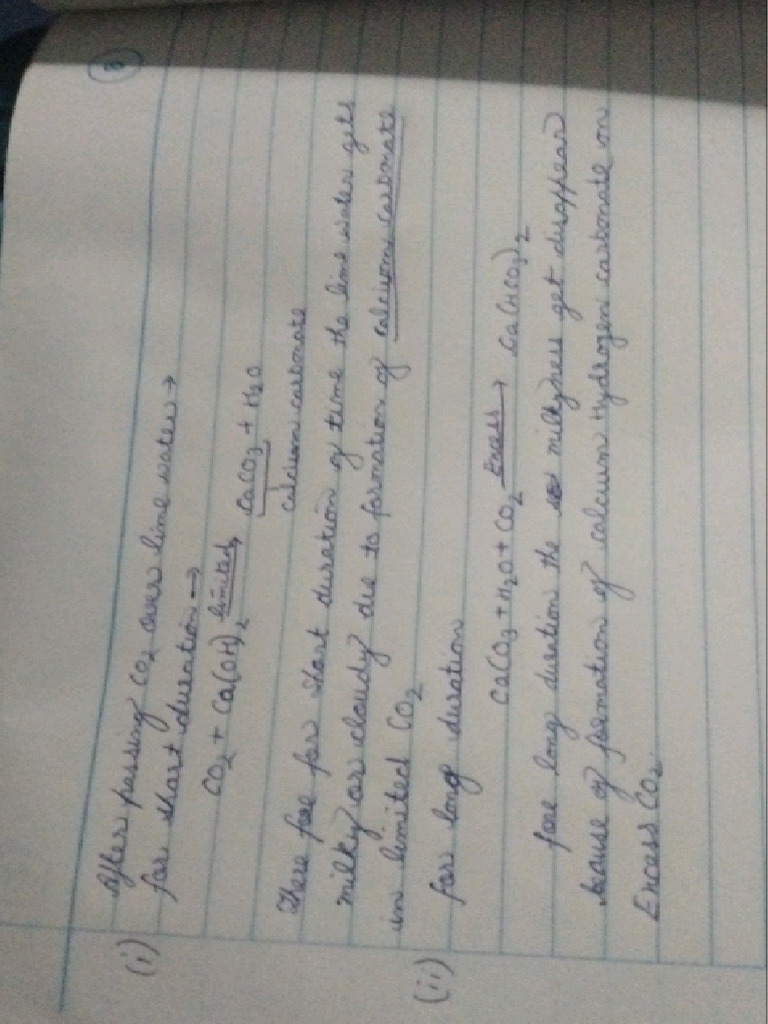 (3)
(i) After passing CO2 over lime water →
for short duration →
CO2 + Ca(OH)2 limited→ CaCO3 + H2O
calcium carbonate
There fore for short duration of time the lime water gets
milky or cloudy due to formation of calcium carbonate
in limited CO2
(ii) for long duration
CaCO3 + H2O + CO2 Excess→ Ca(HCO3)2
fore long duration the milkyness get disappear
because of formation of calcium Hydrogen carbonate on
Excess CO2.